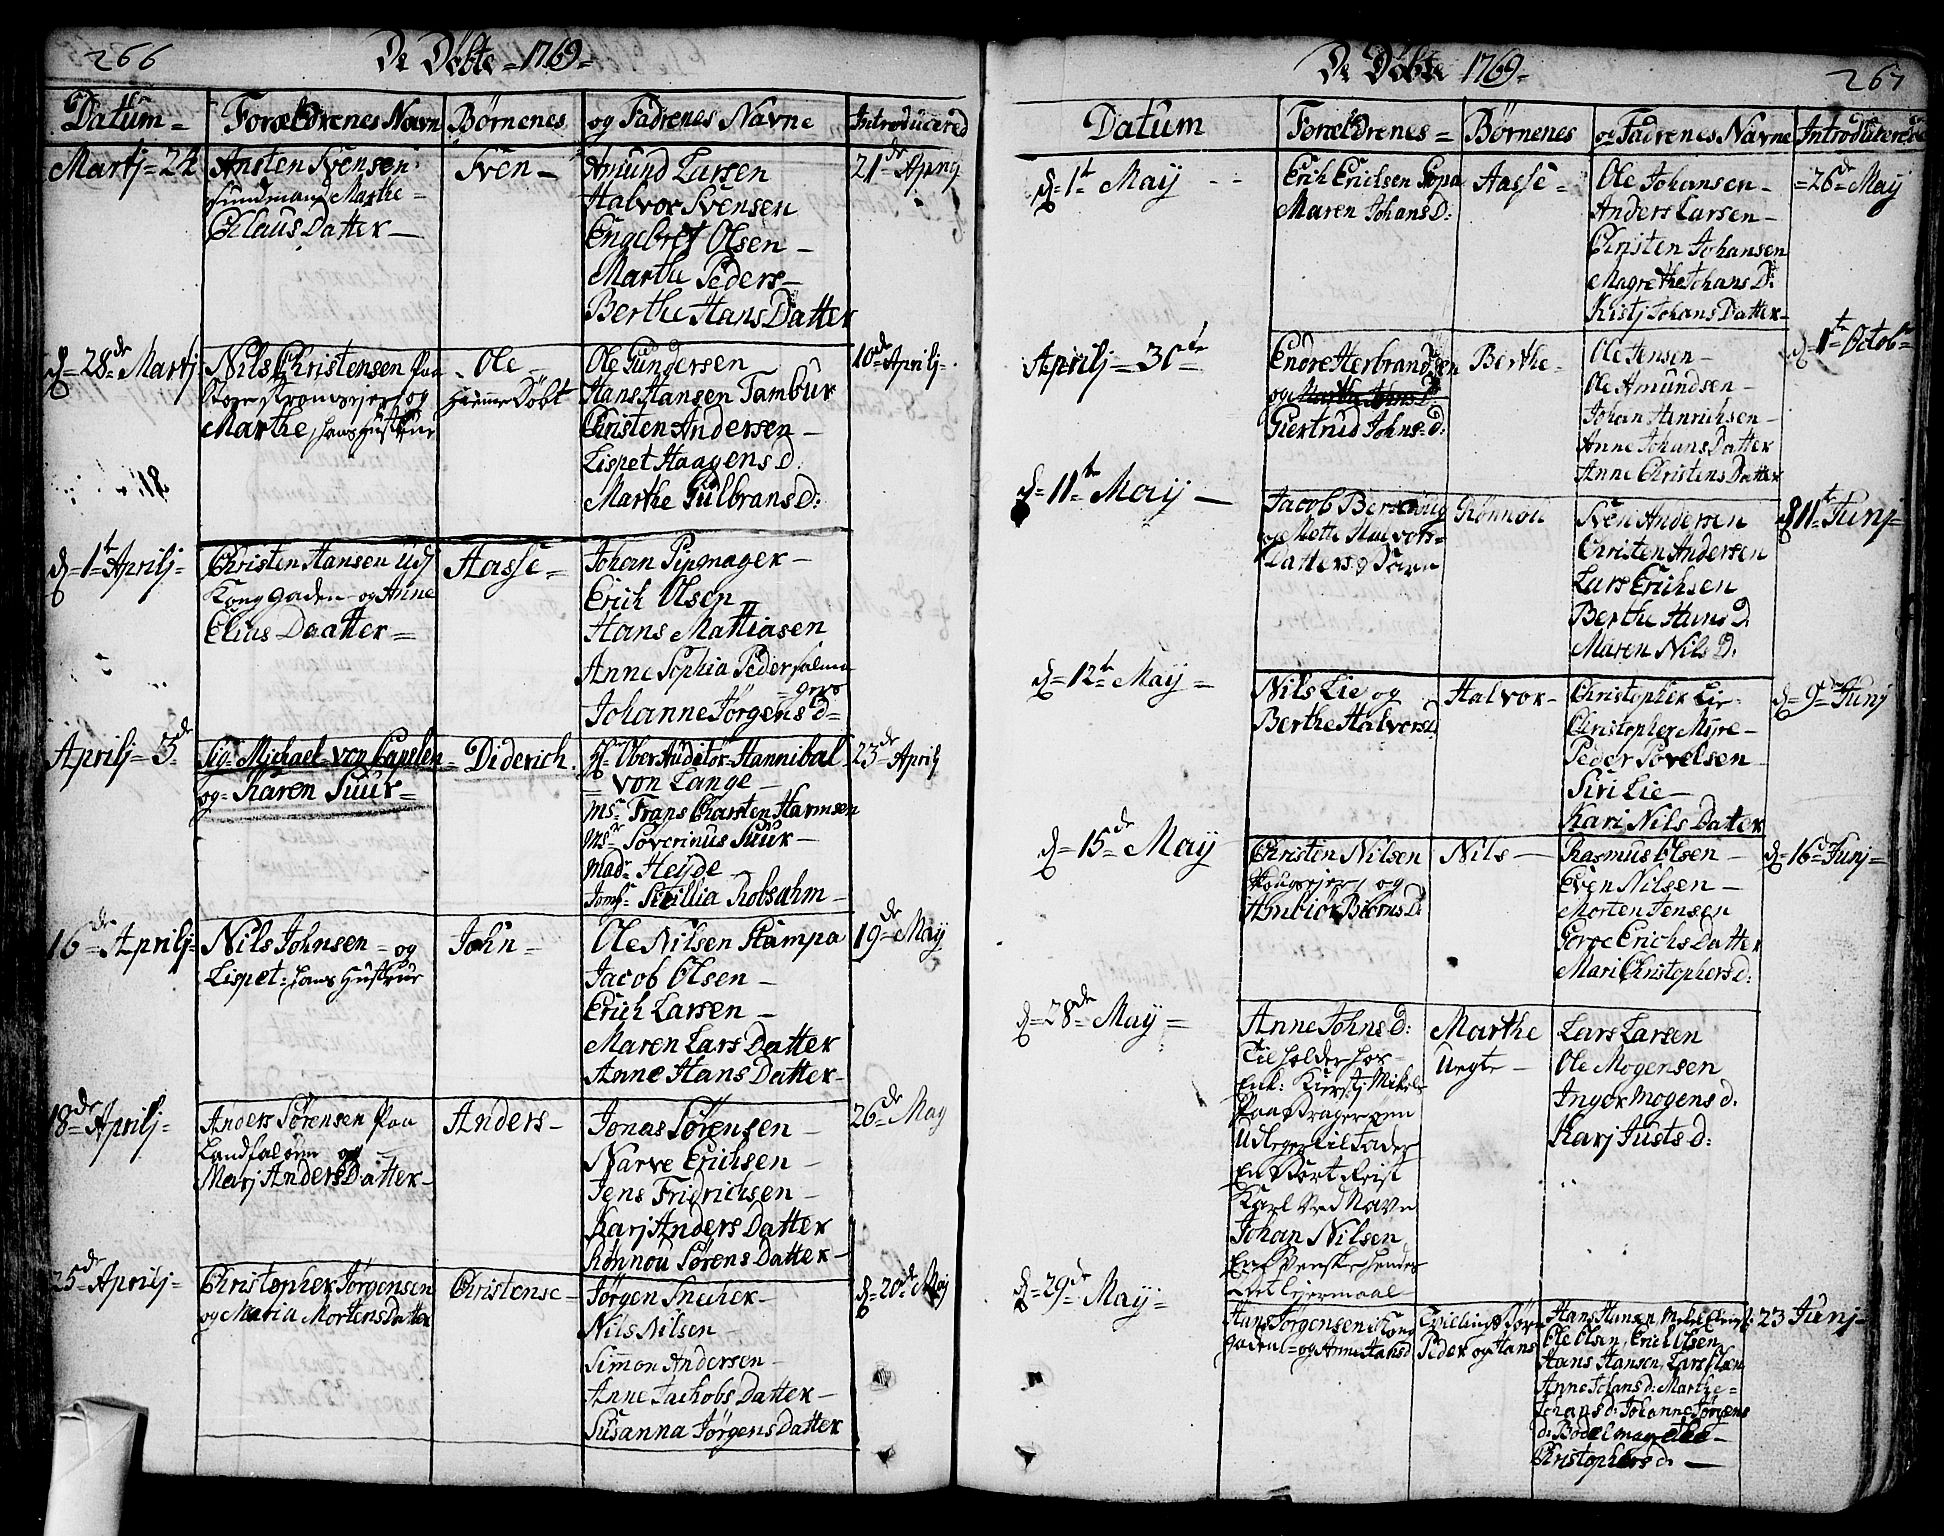 266
De Döbte = 1769 =
Datum =
Forældrenes Navn
Børnenes
og Fadrenes Navne
Introducered
Martj = 22
Ansten Svensen
Sundmand Marthe =
Claus Datter —
Sven —
Amund Larsen
Halvor Svensen
Engebret Olsen —
Marthe Peders —
Berthe Hans Datter
21 de Aprilj
d = 28 de Martj
Nils Christensen paa
Store Strømsøer og
Marthe, hans Hustrue
Ole —
Hiemme Döbt
Ole Gundersen
Hans Hansen Tambur
Christen Andersen —
Lispet Haagens d.
Marthe Gulbrans D:
10 de Aprilj
d = 1 t Aprilj =
Christen Hansen udj
Konggaden og Anne
Elias Daatter =
Aasse =
Johan Pipmager —
Erich Olsen —
Hans Mattiasen
Anne Sophia Peder Salma
= gers
Johanne Jørgens d =
Aprilj = 5 de
Sig. Michael von Capelen
og Karen Suur =
= Diderich.
Hr. Ober Auditör Hannibal
von Lange —
Ms. Frans Charsten Harmsen
Ms. Soverinus Suur —
Mad. Heyde —
Jomf. Secillia Robsahm —
23 de Aprilj
16 de Aprilj =
Nils Johnsen = og
Lispet: hans Hustrue
John —
Ole Nilsen Stampa
Jacob Olsen —
Erich Larsen —
Maren Lars Datter
Anne Hans Datter —
19 de May
18 de Aprilj =
Anders Sörensen paa
Landfaløen og
Marj Anders Datter —
Anders —
Jonas Sörensen —
Narve Erichsen —
Jens Fridrichsen —
Karj Anders Datter
Rønnou Sörens Datter —
26 de May
25 de Aprilj =
Christopher Jørgensen
og Maria Mortens Datter
Christense =
Jørgen Snecher —
Nils Nilsen
Simmon Andersen —
Anne Jachobs Datter —
Susanna Jørgens Datter
d = 20 de May
267
De Döbte 1769 =
Datum
Forældrenes =
Børnenes
og Fadrenes Navne
Introducerede
d = 1 t May - -
Erich Erichsen Sopa
Maren Johans D:
Aasse =
Ole Johansen —
Anders Larsen —
Christen Johansen
Magrethe Johans D:
Kistj Johans Datter —
= 26 de May
Aprilj = 30 te
Endre Herbrandsen
og Marthe Johns D:
Giertrud Johns d:
Berthe —
Ole Jensen —
Ole Amundsen —
Johan Hinrichsen —
Anne Johans Datter
Anne Christens Datter
d = 1 t Octobr
d = 11 te May —
Jacob Bersvoug
og Mette Halvors =
Datters Barn
Rønnou
Sven Andersen
Christen Andersen
Lars Erichsen
Berthe Hans D.
Maren Nils D:
d 11 t Junj —
d = 12 te May =
Nils Lie og
Berthe Halvors d
Halvor —
Christopher Lie —
Christopher Myre —
Peder Povelsen —
Siri Lie —
Kari Nils Datter
d = 9 de Junj
d = 15 de May
Christen Nilsen
og
Ambior Biörns D:
Nils —
Rasmus Olsen —
Even Nilsen —
Morten Jensen
Goroe Erichs Datter
Mari Christophers d:
d = 16 Junj =
d = 28 de May =
Anne Johns d:
Tilholder hos
Enk: Kierstj Mikels
paa Bragerøen
Udlegger til Fader
En bort Reist
Karl ved Navn
Johan Nilsen
En Svenske hendes
1 det Leiermaal
Marthe
Uegte —
Lars Larsen
Ole Mogensen
Ingor Mogens d.
Karj Justs d:
d = 29 de May =
Hans Jørgensen i Kong
gaden = og Anne Hans d
Tvilling Børn
Peder og Hans
Hans Hansen,
Ole Olsen, Erich Olsen,
Hans Hansen, Lars Olsen
Anne Johans d: Marthe =
Johans d: Johanne Jørgens
d: Bodel
Christophers d: —
23 Junj =